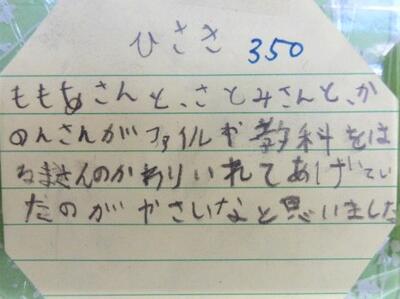 ひさき 350
ももかさんと、さとみさんと、か
のんさんがファイルや教科をは
るまさんのかわりいれてあげてい
たのがやさいなと思いました